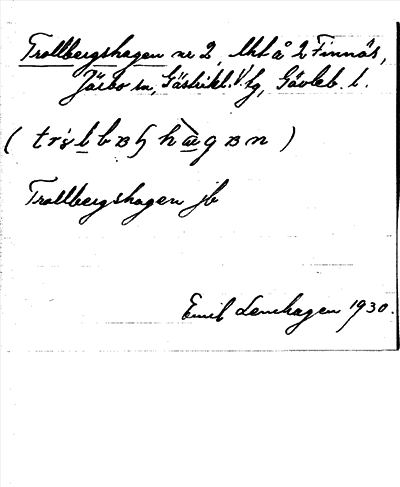 Trollbergshagen nr 2, Mt å 2 Finnäs,
Järbo sn, Gästrikl. V. tg, Gävleb. l.
Trollbergshagen jb
Emil Lenhagen 1930.